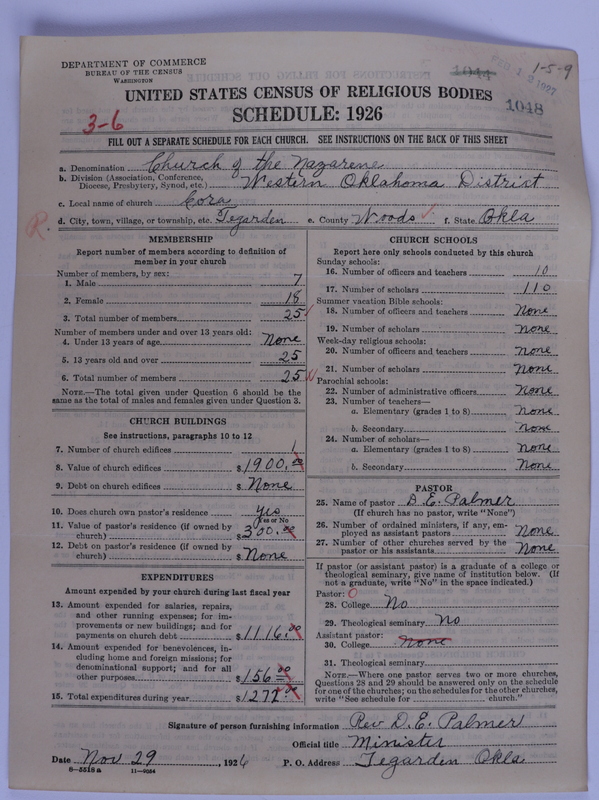 DEPARTMENT OF COMMERCE
BUREAU OF THE CENSUS
WASHINGTON
1044
FEB 12 1927
1-5-9
1048
UNITED STATES CENSUS OF RELIGIOUS BODIES
SCHEDULE: 1926
3-6
FILL OUT A SEPARATE SCHEDULE FOR EACH CHURCH. SEE INSTRUCTIONS ON THE BACK OF THIS SHEET
a. Denomination Church of the Nazarene
b. Division (Association, Conference, Diocese, Presbytery, Synod, etc.) Western Oklahoma District
c. Local name of church Cora
R.
d. City, town, village, or township, etc. Tegarden e. County Woods ✓ f. State Okla
MEMBERSHIP
Report number of members according to definition of
member in your church
Number of members, by sex:
1. Male 7
2. Female 18
3. Total number of members 25 ✓
Number of members under and over 13 years old:
4. Under 13 years of age None
5. 13 years old and over 25
6. Total number of members 25
NOTE.—The total given under Question 6 should be
same as the total of males and females given under Question 3.
CHURCH BUILDINGS
See instructions, paragraphs 10 to 12
7. Number of church edifices 1
8. Value of church edifices $1900.00
9. Debt on church edifices $None
10. Does church own pastor's residence yes
Yes or No
11. Value of pastor's residence (if owned by
church) $300.00
12. Debt on pastor's residence (if owned by
church) $None
EXPENDITURES
Amount expended by your church during last fiscal year
13. Amount expended for salaries, repairs,
and other running expenses; for im-
provements or new buildings; and for
payments on church debt $1116.00
14. Amount expended for benevolences, in-
cluding home and foreign missions; for
denominational support; and for all
other purposes $156.00
15. Total expenditures during year $1272.00
CHURCH SCHOOLS
Report here only schools conducted by this church
Sunday schools:
16. Number of officers and teachers 10
17. Number of scholars 110
Summer vacation Bible schools:
18. Number of officers and teachers None
19. Number of scholars none
Week-day religious schools:
20. Number of officers and teachers None
21. Number of scholars None
Parochial schools:
22. Number of administrative officers None
23. Number of teachers—
a. Elementary (grades 1 to 8) None
b. Secondary None
24. Number of scholars—
a. Elementary (grades 1 to 8) None
b. Secondary None
PASTOR
25. Name of pastor D. E. Palmer
(If church has no pastor, write "None")
26. Number of ordained ministers, if any, em-
ployed as assistant pastors None
27. Number of other churches served by the
pastor or his assistants None
If pastor (or assistant pastor) is a graduate of a college or
theological seminary, give name of institution below. (If
not a graduate, write "No" in the space indicated.)
Pastor: O
28. College No
29. Theological seminary No
Assistant pastor:
30. College None
31. Theological seminary
NOTE.—Where one pastor serves two or more churches,
Questions 28 and 29 should be answered only on the schedule
for one of the churches; on the schedules for the other churches,
write "See schedule for ........ church."
Signature of person furnishing information Rev D. E. Palmer
Official title Minister
Date Nov 29, 1926 P. O. Address Tegarden Okla
6-5518a 11-9034